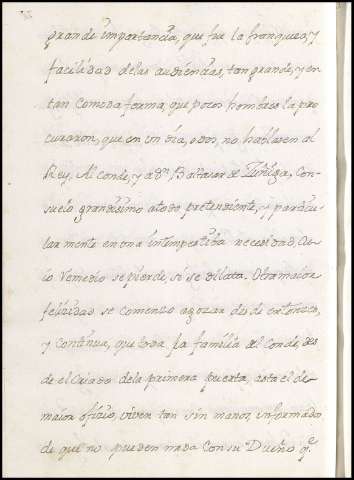 grande importancia, que fue la franqueza, y
facilidad de las audiencias, tan grande, y en
tan comoda forma, que pocos hombres la pro
curaron, que en un dia, o dos, no hablasen al
Rey, Al Conde, y a Dn Baltasar de Zuñiga, Con
suelo grandisimo a todo pretendiente, y particu
lar mente en una intempestiba necesidad, cu
io Remedio se pierde, si se dilata. Otra maior
felizidad se comenzo a gozar desde entonces,
y continua, que toda la familia del Conde, des
de el Criado de la primera puerta, asta el de
maior ofizio, viven tan sin manos, informados
de que no pueden nada con su Dueño qe